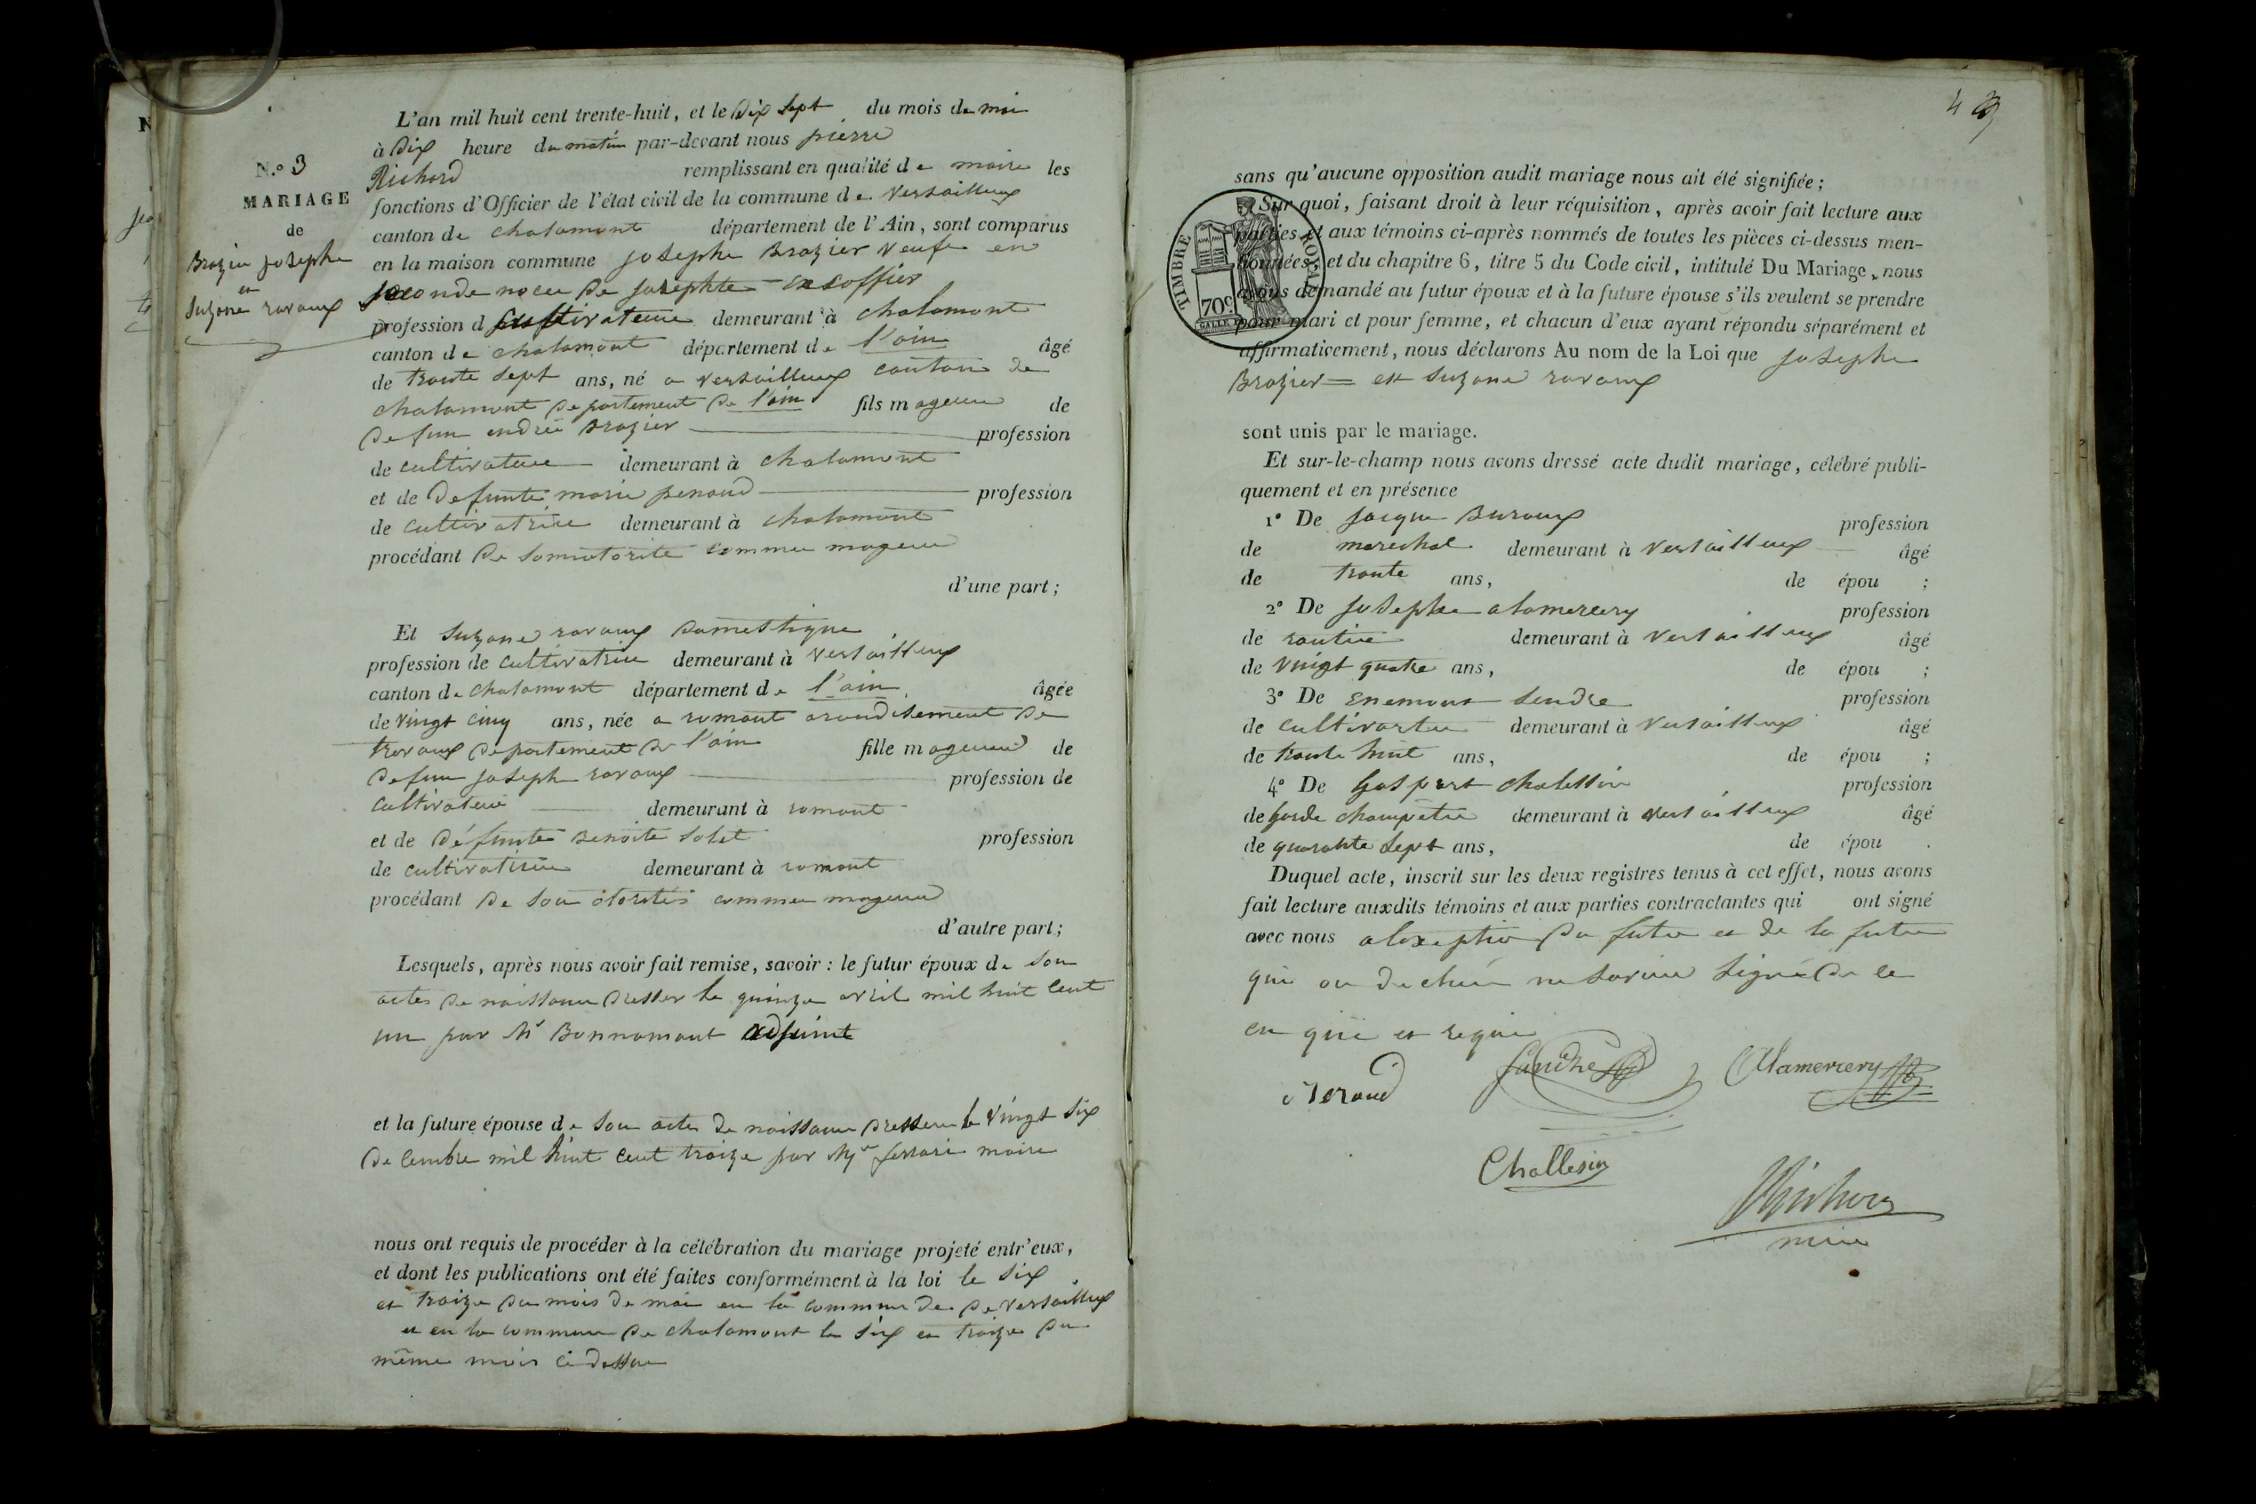 N.º 3
MARIAGE
de
Brazier josephe
et
Suzane ravoux
L'an mil huit cent trente-huit, et le dix sept du mois de mai
à dix heure du matin par-devant nous pierre
Richard remplissant en qualité de maire les
fonctions d'Officier de l'état civil de la commune de versailleux
canton de chalamont département de l'Ain, sont comparus
en la maison commune josephe Brazier veufe en
seconde noce de josephte
profession d cultivateure demeurant à chalamont
canton de chalamont département de l'ain âgé
de trante sept ans, né a versailleux canton de
chalamont departement de l'ain fils mageure de
defun andrée Brazier profession
de cultivateure demeurant à chalamont
et de defunte marie penaud profession
de cultivatrice demeurant à chalamont
procédant de commee mageure
d'une part;
Et Suzane ravoux domestique
profession de cultivatrice demeurant à versailleux
canton de chalamont département de l'ain âgée
de vingt cinq ans, née a romant arondisement de
trevoux departement de l'ain fille mageure de
defun joseph ravoux profession de
cultivateure demeurant à romant
et de défunte benoite profession
de demeurant à romant
procédant de son commee mageure
d'autre part;
Lesquels, après nous avoir fait remise, savoir : le futur époux de son
actes de naissance dresser le quinze avril mil huit cent
un par Mr Bonnamant adjoint
et la future épouse de son actes de naissance le vingt six
decembre mil huit cent traize par Mr ferrari maire
nous ont requis de procéder à la célébration du mariage projeté entr'eux,
et dont les publications ont été faites conformément à la loi le six
et traize du mois de mai en la commune de de versailleux
et en la commune de chalamont le six et traize du
même mois ci dessue
4
TIMBRE ROYAL
70c
sans qu'aucune opposition audit mariage nous ait été signifiée;
Sur quoi, faisant droit à leur réquisition, après avoir fait lecture aux
parties et aux témoins ci-après nommés de toutes les pièces ci-dessus men-
tionnées, et du chapitre 6, titre 5 du Code civil, intitulé Du Mariage, nous
avons demandé au futur époux et à la future épouse s'ils veulent se prendre
pour mari et pour femme, et chacun d'eux ayant répondu séparément et
affirmativement, nous déclarons Au nom de la Loi que josephe
Brazier = et Suzane ravoux
sont unis par le mariage.
Et sur-le-champ nous avons dressé acte dudit mariage, célébré publi-
quement et en présence
1º De jacque profession
de marechal demeurant à versailleux âgé
de trante ans, de épou ;
2º De josephe alamercery profession
de rantier demeurant à versailleux âgé
de vingt quatre ans, de épou ;
3º De Enemont Sendre profession
de demeurant à versailleux âgé
de trante huit ans, de épou ;
4º De Gaspert chalessin profession
de garde champetre demeurant à versailleux âgé
de quarante sept ans, de épou .
Duquel acte, inscrit sur les deux registres tenus à cet effet, nous avons
fait lecture auxdits témoins et aux parties contractantes qui ont signé
avec nous du futur et de la future
qui on signé de ce
en qui et requi
Alamercery
Challesin
Richard
maire